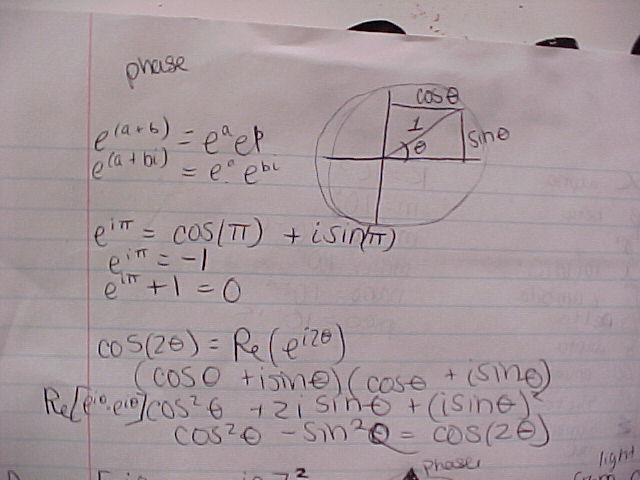 phase
cosθ
1
θ
sinθ
e^(a+b) = e^a e^b
e^(a+bi) = e^a e^bi
e^iπ = cos(π) + isin(π)
e^iπ = -1
e^iπ + 1 = 0
cos(2θ) = Re(e^i2θ)
(cosθ + isinθ)(cosθ + isinθ)
Re[e^iθ·e^iθ] cos²θ + 2i sinθ + (isinθ)²
cos²θ - sin²θ = cos(2θ)
phase
light